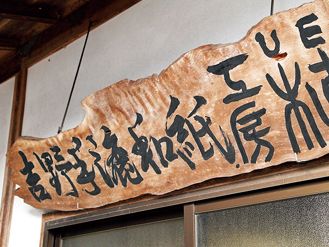 吉野手漉和紙工房 植
UE